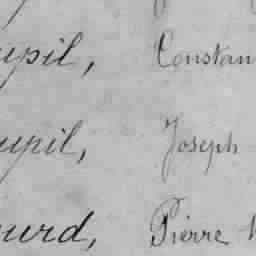 upil, Constan
upil, Joseph
urd, Pierre